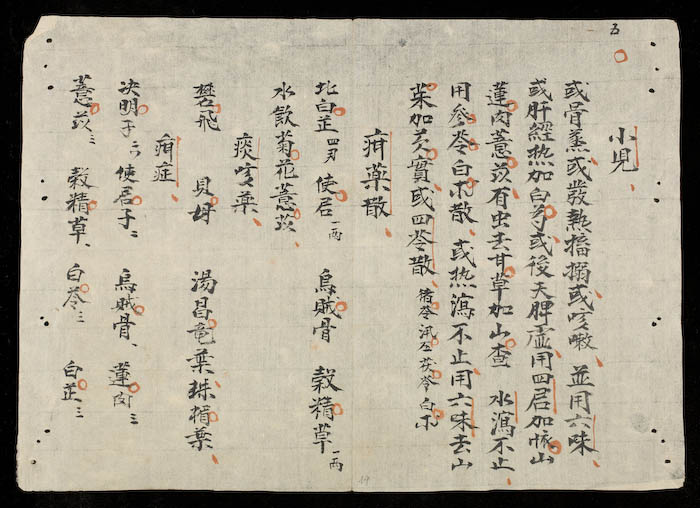 五
小児
或骨蒸或發熱搐搦或咳嗽 並用六味
或肝經热加白芍或後天脾虚用四君加 山
蓮肉薏苡有虫去甘草加山查 水瀉不止
用參苓白朮散 或热瀉不止用六味去山
茱加芡實或四苓散 猪苓 茯苓白朮
疳薬散
北白芷 使君 一両 烏賊骨 穀精草 一両
水飲菊花薏苡
痰咳薬
礬飛 貝母 湯昌 葉珠 葉
疳症
决明子 六 使君子 二 烏賊骨 蓮肉 三
薏苡 三 穀精草 白苓 三 白芷 三
19